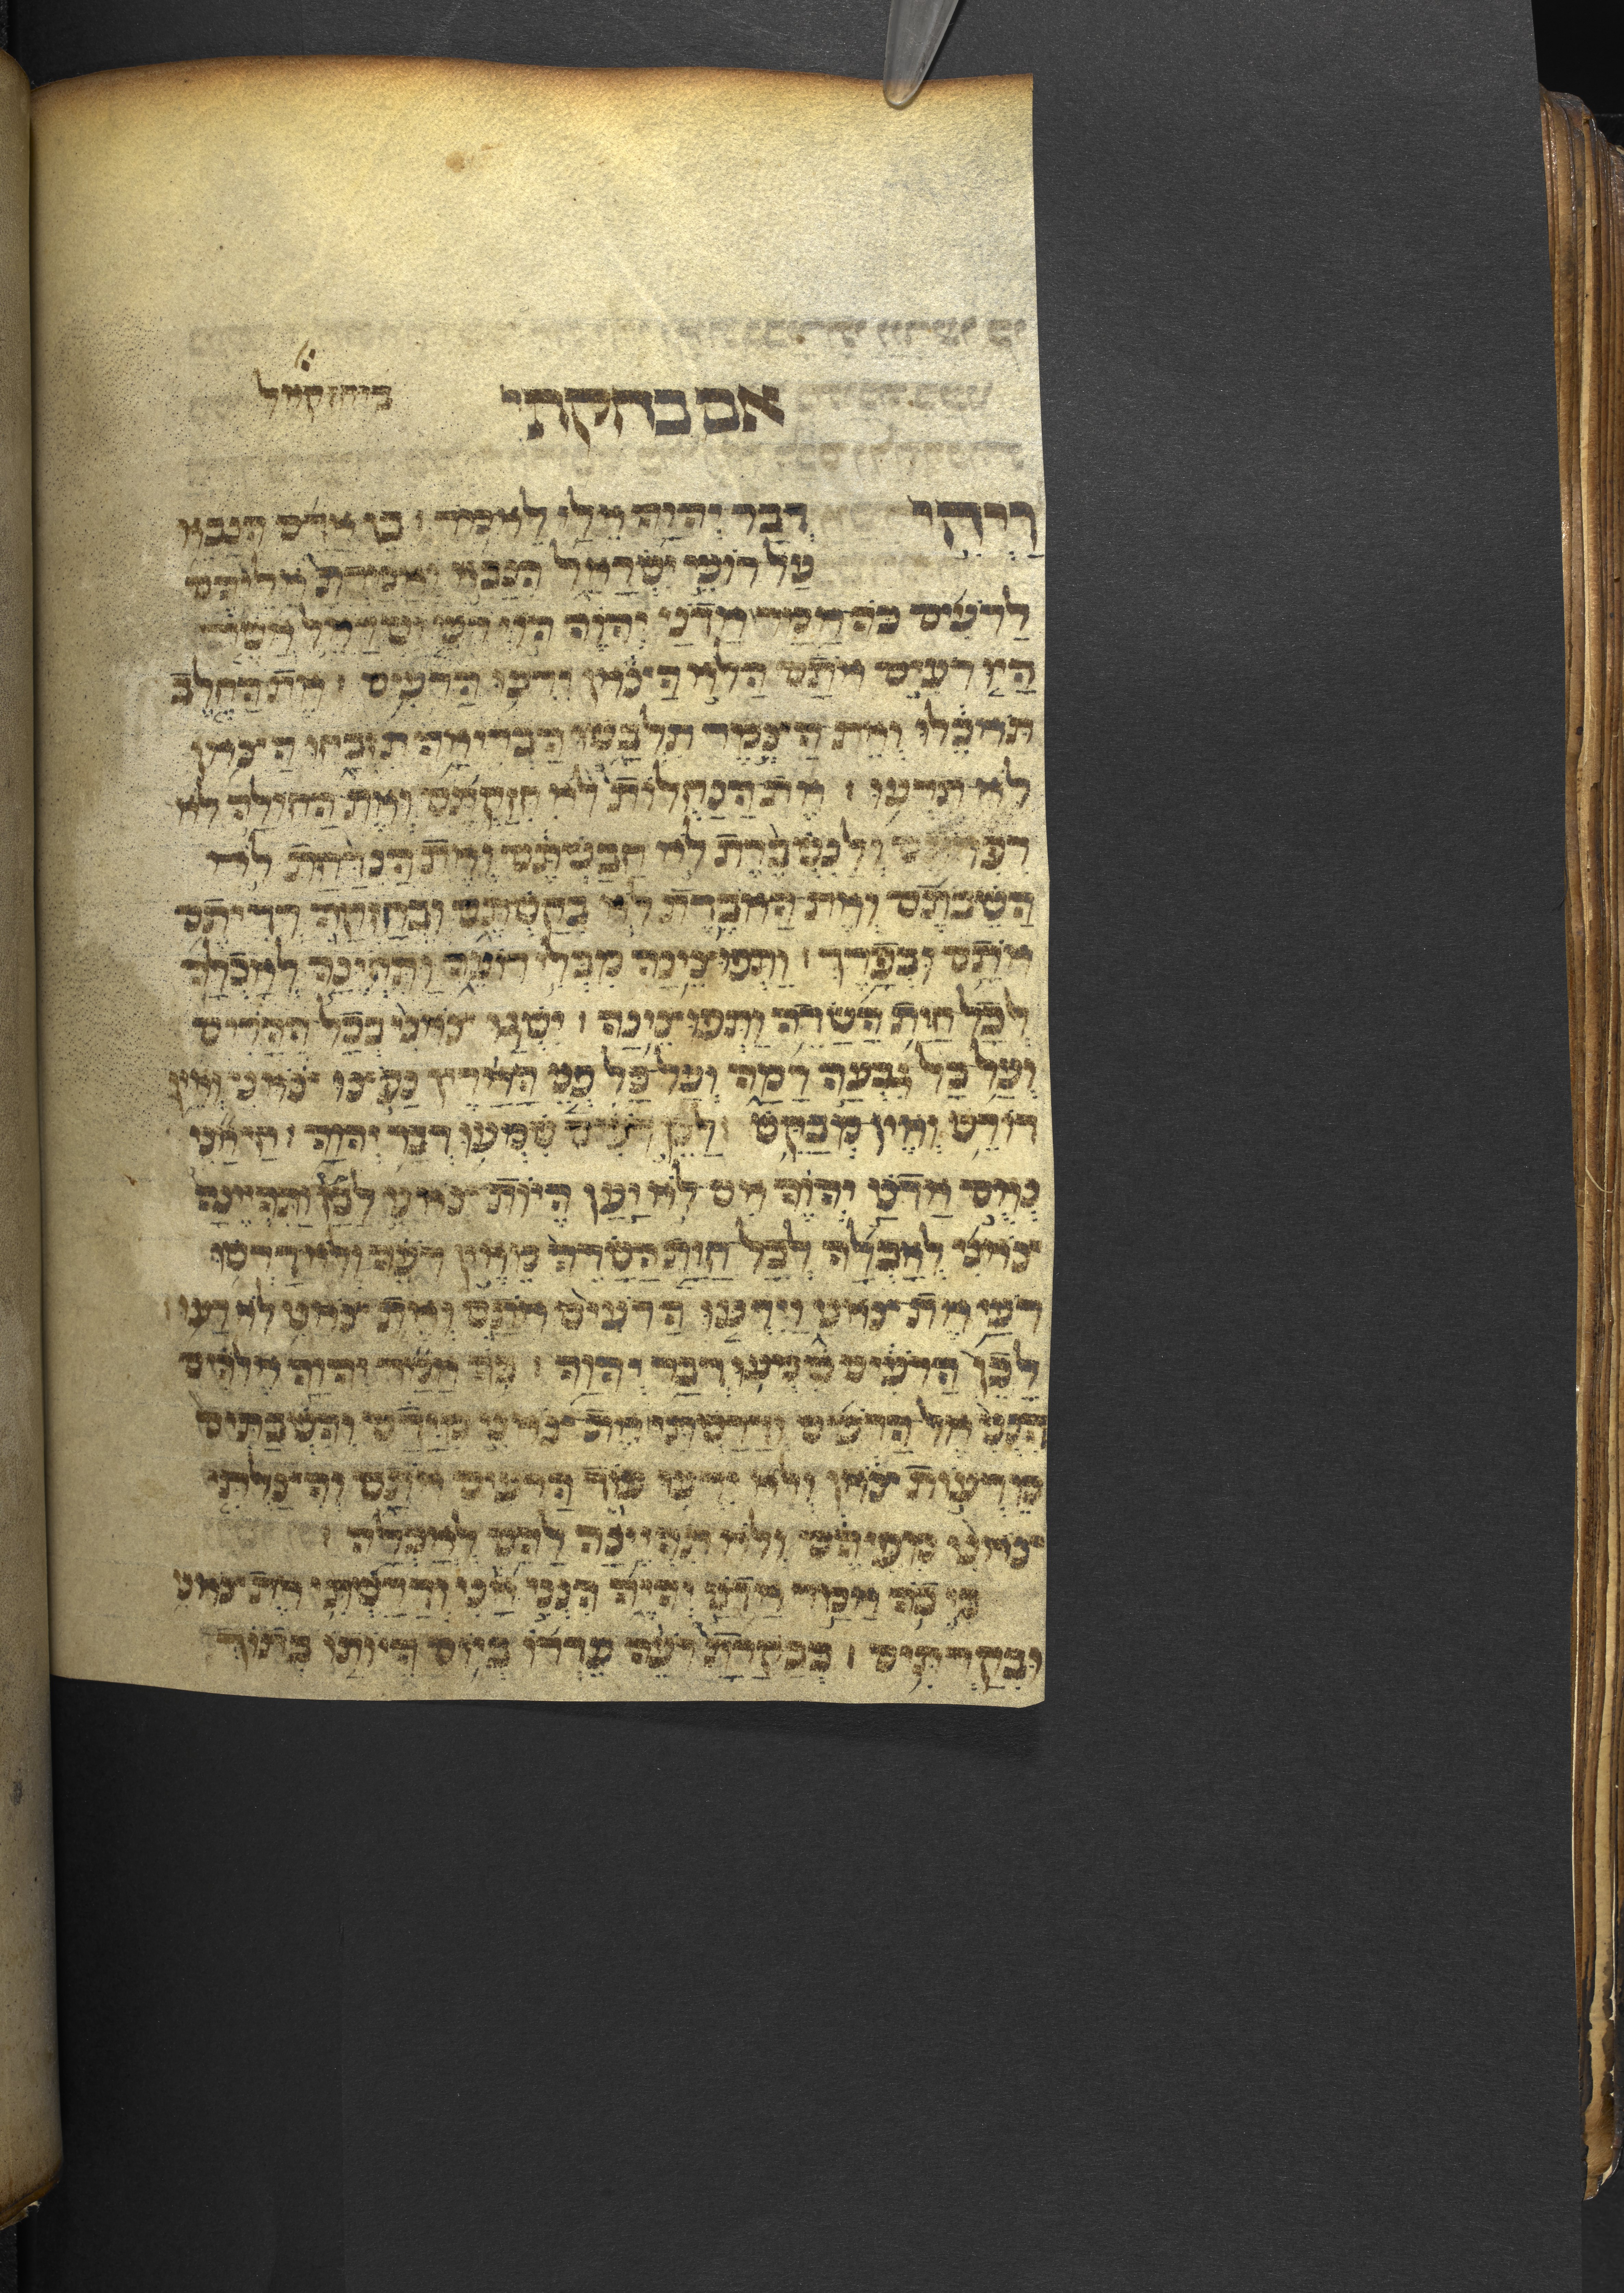 אם בחקתי ביחזקאל
ויהי דבר יהוה אלי לאמר : בן אדם הנבא
על רועי ישראל הנבא ואמרת אליהם
לרעים כה אמר אדני יהוה הוי רעי ישראל אשר
היו רעים אתם הלא הצאן ירעו הרעים : את החלב
תאכלו ואת הצמר תלבשו הבריאה תזבחו הצאן
לא תרעו : את הנחלות לא חזקתם ואת החולה לא
רפאתם ולנשברת לא חבשתם ואת הנדחת לא
השבתם ואת האבדת לא בקשתם ובחזקה רדיתם
אתם ובפרך : ותפוצינה מבלי רועה ותהיינה לאכלה
לכל חית השדה ותפוצינה : ישגו צאני בכל ההרים
ועל כל גבעה רמה ועל כל פני הארץ נפצו צאני ואין
דורש ואין מבקש : לכן רעים שמעו דבר יהוה : חי אני
נאם אדני יהוה אם לא יען היות צאני לבז ותהיינה
צאני לאכלה לכל חית השדה מאין רעה ולא דרשו
רעי את צאני וירעו הרעים אתם ואת צאני לא רעו :
לכן הרעים שמעו דבר יהוה : כה אמר יהוה אלהים
הנני אל הרעים ודרשתי את צאני מידם והשבתים
מרעות צאן ולא ירעו עוד הרעים אתם והצלתי
צאני מפיהם ולא תהיינה להם לאכלה :
כי כה אמר אדני יהוה הנני אני ודרשתי את צאני
ובקרתים : כבקרת רעה עדרו ביום היותו בתוך